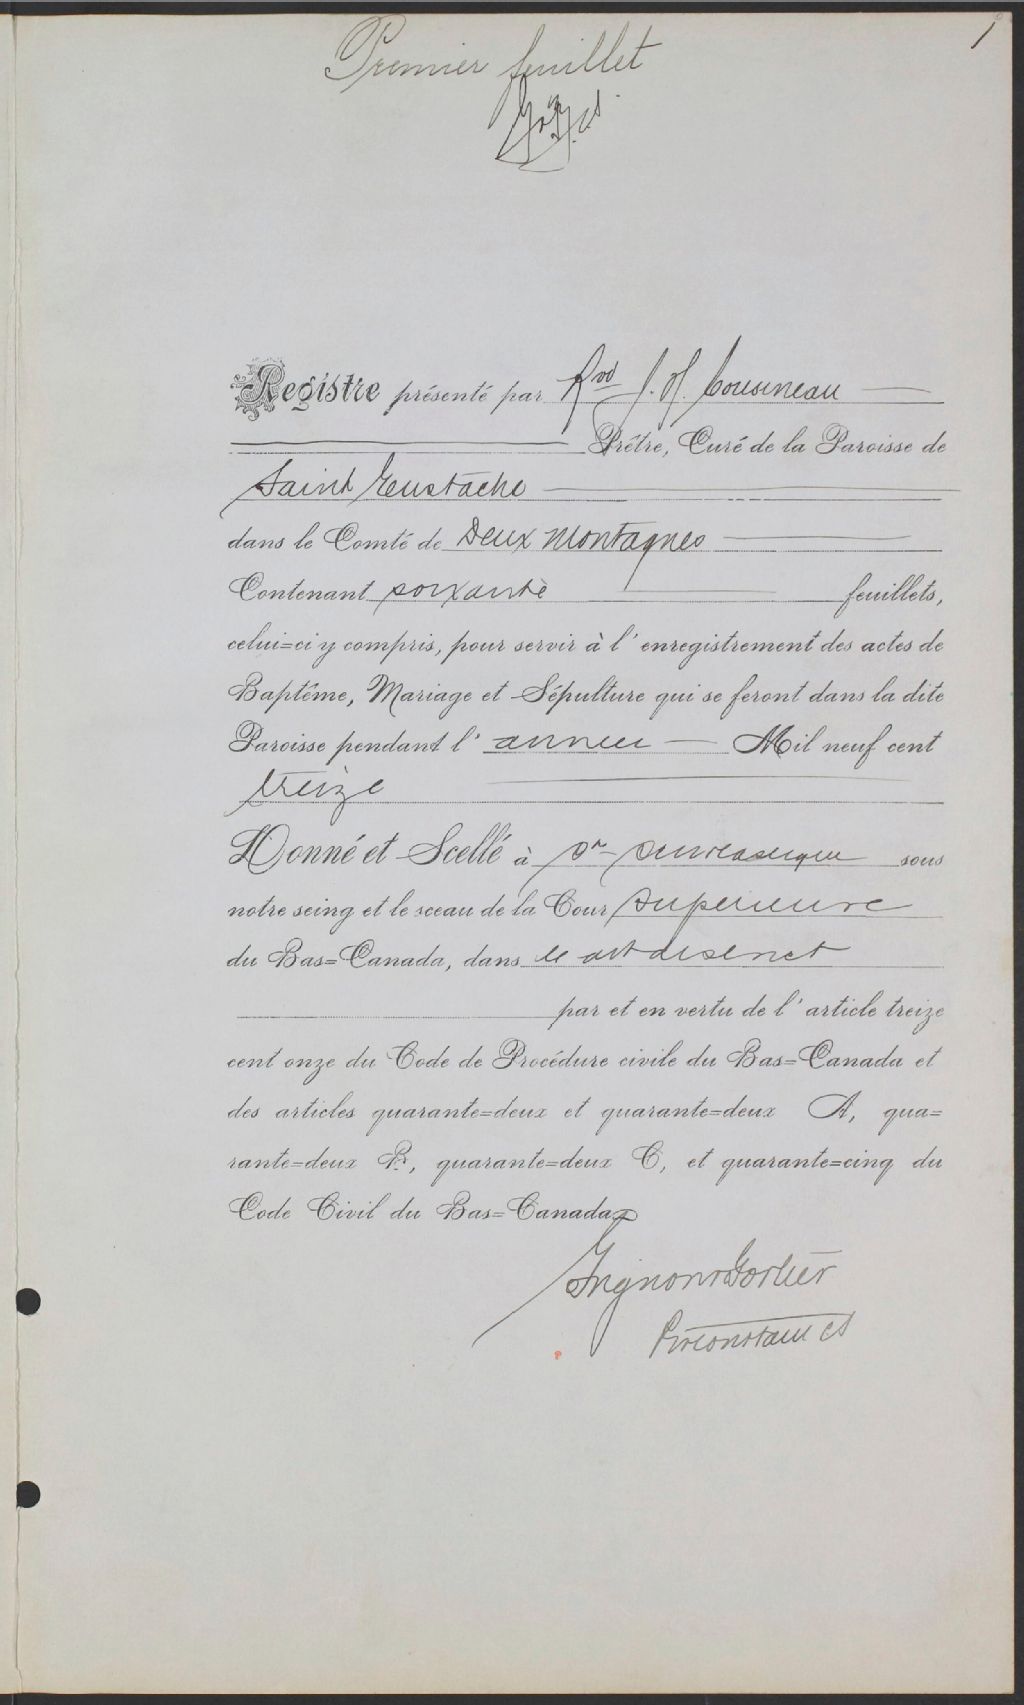 1
Premier feuillet
Registre présenté par Rvd J. H. Cousineau
Prêtre, Curé de la Paroisse de
Saint Eustache
dans le Comté de Deux Montagnes
Contenant soixante feuillets,
celui=ci y compris, pour servir à l' enregistrement des actes de
Baptême, Mariage et Sépulture qui se feront dans la dite
Paroisse pendant l' année Mil neuf cent
treize
Donné et Scellé à Ste Scholastique sous
notre seing et le sceau de la Cour Supérieure
du Bas=Canada, dans le dit district
par et en vertu de l' article treize
cent onze du Code de Procédure civile du Bas=Canada et
des articles quarante=deux et quarante=deux A, qua=
rante=deux B, quarante=deux C, et quarante=cinq du
Code Civil du Bas=Canada
Grignon & Fortier